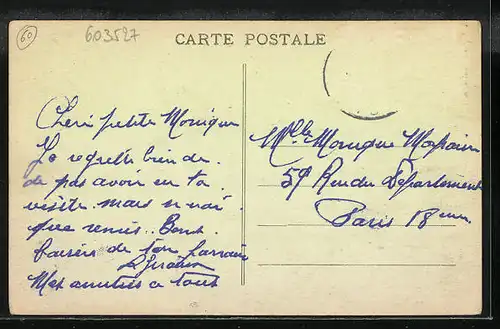 60
603527
CARTE POSTALE
Cheri petite Monique
Je regrette bien de
de pas avoir eu ta
visite mais n
que remis. Bons
baisers de ton parrain
Mes amitiés a tous
Mlle Monique
59 Rue du Département
Paris 18eme